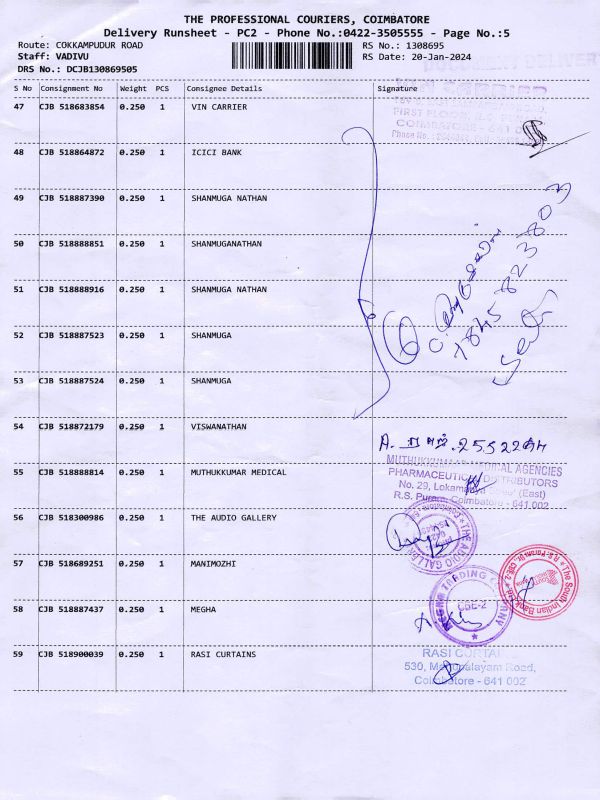 THE PROFESSIONAL COURIERS, COIMBATORE
Delivery Runsheet - PC2 - Phone No.:0422-3505555 - Page No.:5
Route: COKKAMPUDUR ROAD RS No.: 1308695
Staff: VADIVU RS Date: 20-Jan-2024
DRS No.: DCJB130869505
S No Consignment No Weight PCS Consignee Details Signature
47 CJB 518683854 0.250 1 VIN CARRIER
FIRST FLOOR,
COIMBATORE - 641
Phone No.
48 CJB 518864872 0.250 1 ICICI BANK
49 CJB 518887390 0.250 1 SHANMUGA NATHAN
50 CJB 518888851 0.250 1 SHANMUGANATHAN
51 CJB 518888916 0.250 1 SHANMUGA NATHAN
7845823803
52 CJB 518887523 0.250 1 SHANMUGA
53 CJB 518887524 0.250 1 SHANMUGA
54 CJB 518872179 0.250 1 VISWANATHAN
MUTHUKKUMAR MEDICAL AGENCIES
55 CJB 518888814 0.250 1 MUTHUKKUMAR MEDICAL
PHARMACEUTICAL DISTRIBUTORS
No. 29, Lokamanya Street (East)
R.S. Puram, Coimbatore - 641 002
56 CJB 518300986 0.250 1 THE AUDIO GALLERY
THE AUDIO GALLERY
57 CJB 518689251 0.250 1 MANIMOZHI
The South Indian Bank Ltd. R.S. Puram Br. CBE-2
58 CJB 518887437 0.250 1 MEGHA
MEGHA TRADING COMPANY
CBE-2
59 CJB 518900039 0.250 1 RASI CURTAINS
RASI CURTAINS
530, Mettupalayam Road,
Coimbatore - 641 002